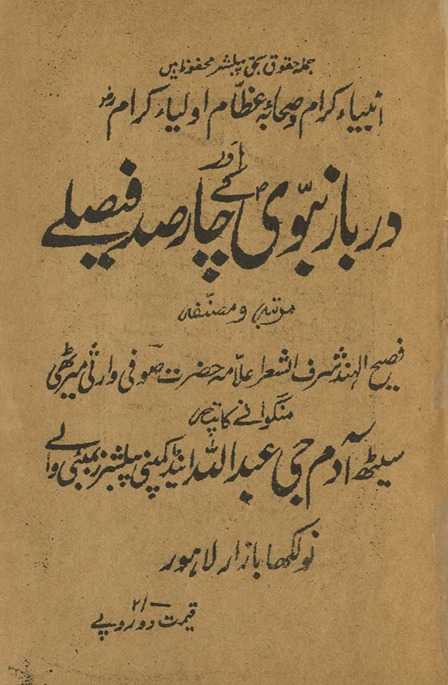 جملہ حقوق بحق پبلشر محفوظ ہیں
انبیاء کرام و صحابۂ عظام اولیاء کرام رض
اور
دربار نبوی ص کے چار صد فیصلے
مرتبہ و مصنفہ
فصیح الہند شرف الشعرا علامہ حضرت صوفی وارثی میرٹھی
منگوانے کا پتہ
سیٹھ آدم جی عبداللہ اینڈ کمپنی پبلشرز بمبئی والے
نولکھا بازار لاہور
۲/-
قیمت دو روپے